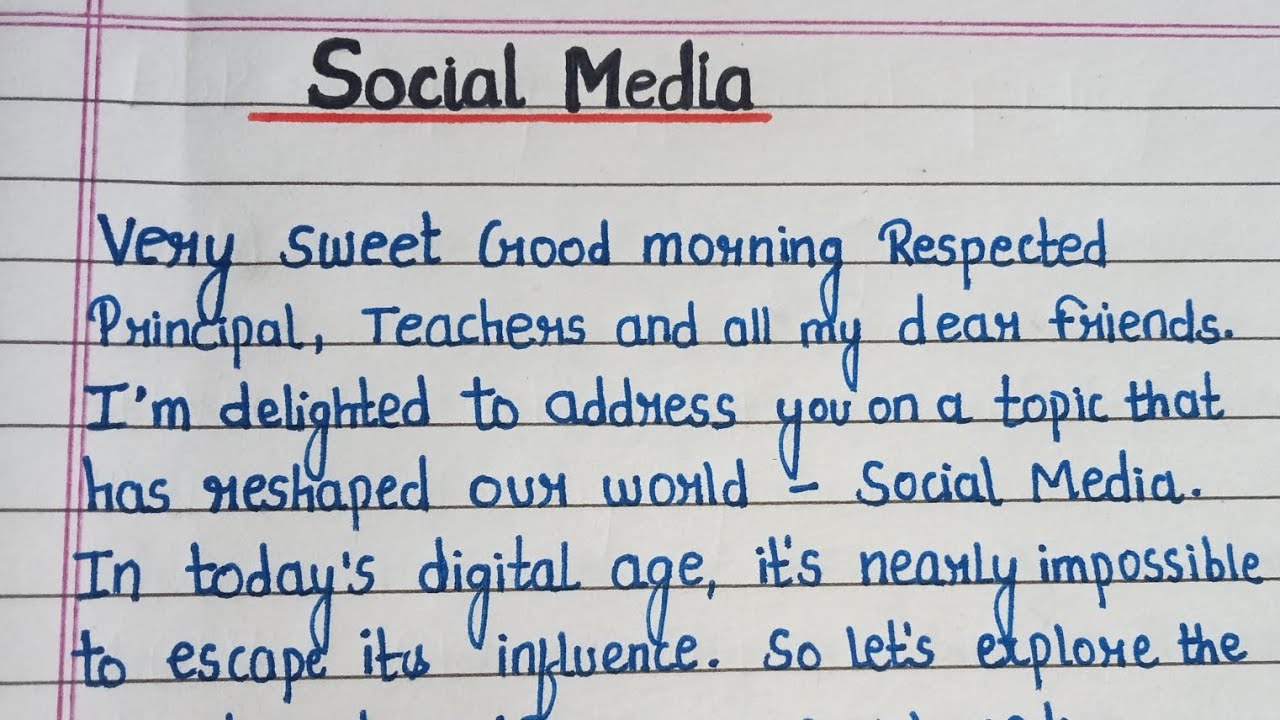 Social Media
Very sweet Good morning Respected
Principal, Teachers and all my dear friends.
I'm delighted to address you on a topic that
has reshaped our world - Social Media.
In today's digital age, it's nearly impossible
to escape its influence. So let's explore the